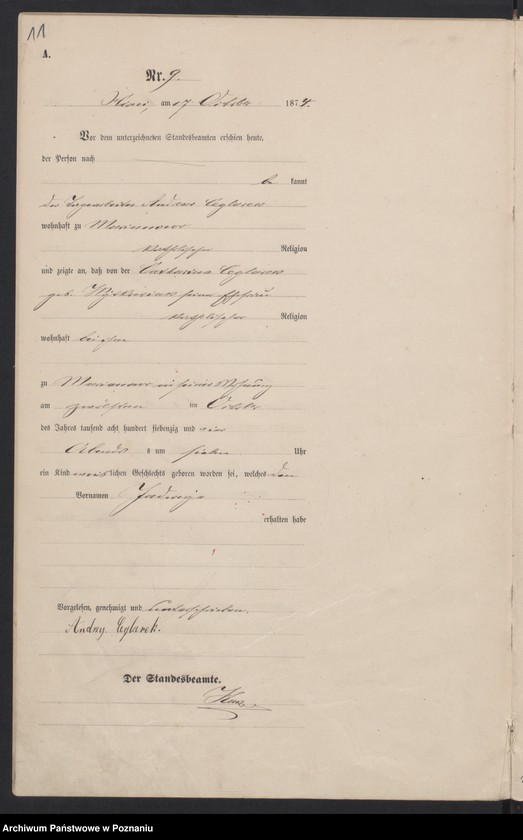 11
A.
Nr. 9.
am 17 October 1874.
Vor dem unterzeichneten Standesbeamten erschien heute,
der Person nach
be kannt
der Andreas Ceglarek
wohnhaft zu Marianowo
katholischer Religion
und zeigte an, daß von der Catharina Ceglarek
geb. seiner Ehefrau
katholischer Religion
wohnhaft bei ihm
zu Marianowo in seiner Wohnung
am zwölften im October
des Jahres tausend acht hundert siebenzig und vier
Abends s um sieben Uhr
ein Kind weiblichen Geschlechts geboren worden sei, welches den
Vornamen Jadwiga
erhalten habe
Vorgelesen, genehmigt und unterschrieben.
Andrzy Ceglarek.
Der Standesbeamte.
Archiwum Państwowe w Poznaniu